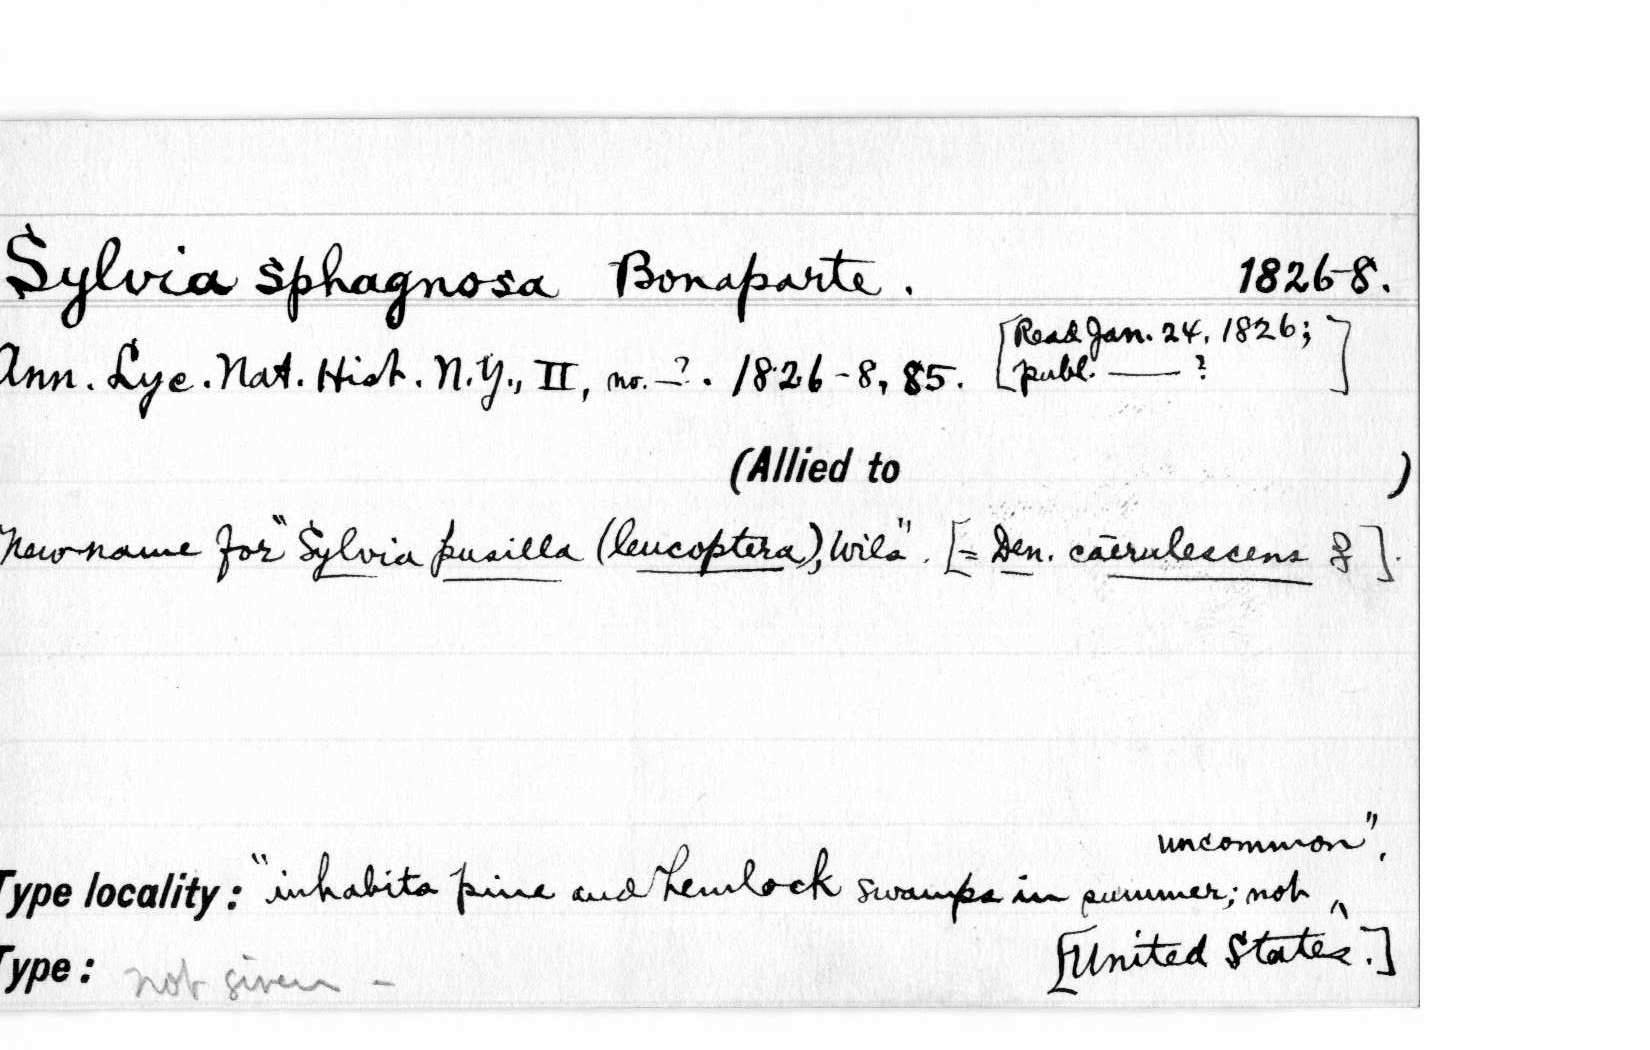 Sylvia sphagnosa Bonaparte. 1826-8.
Ann. Lyc. Nat. Hist. N.Y., II, no. —?. 1826-8, 85. [Read Jan. 24, 1826;
publ. —— ? ]
(Allied to )
New name for "Sylvia pusilla (leucoptera), Wils". [= Den. caerulescens ♀].
uncommon",
Type locality: "inhabits pine and hemlock swamps in summer; not
Type: not given - [United States".]